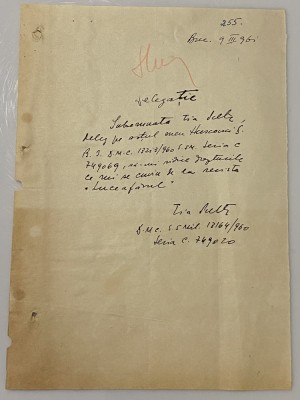 255.
Buc. 9 III 961
Delegație
Subsemnata Lia
deleg pe soțul meu
B. I. D.M.C. 13213/960 Seria C
749069, să-mi ridice drepturile
ce mi se cuvin de la revista
"Luceafărul"
Lia
D.M.C. S 5 Mil. 13164/960
Seria C. 749020